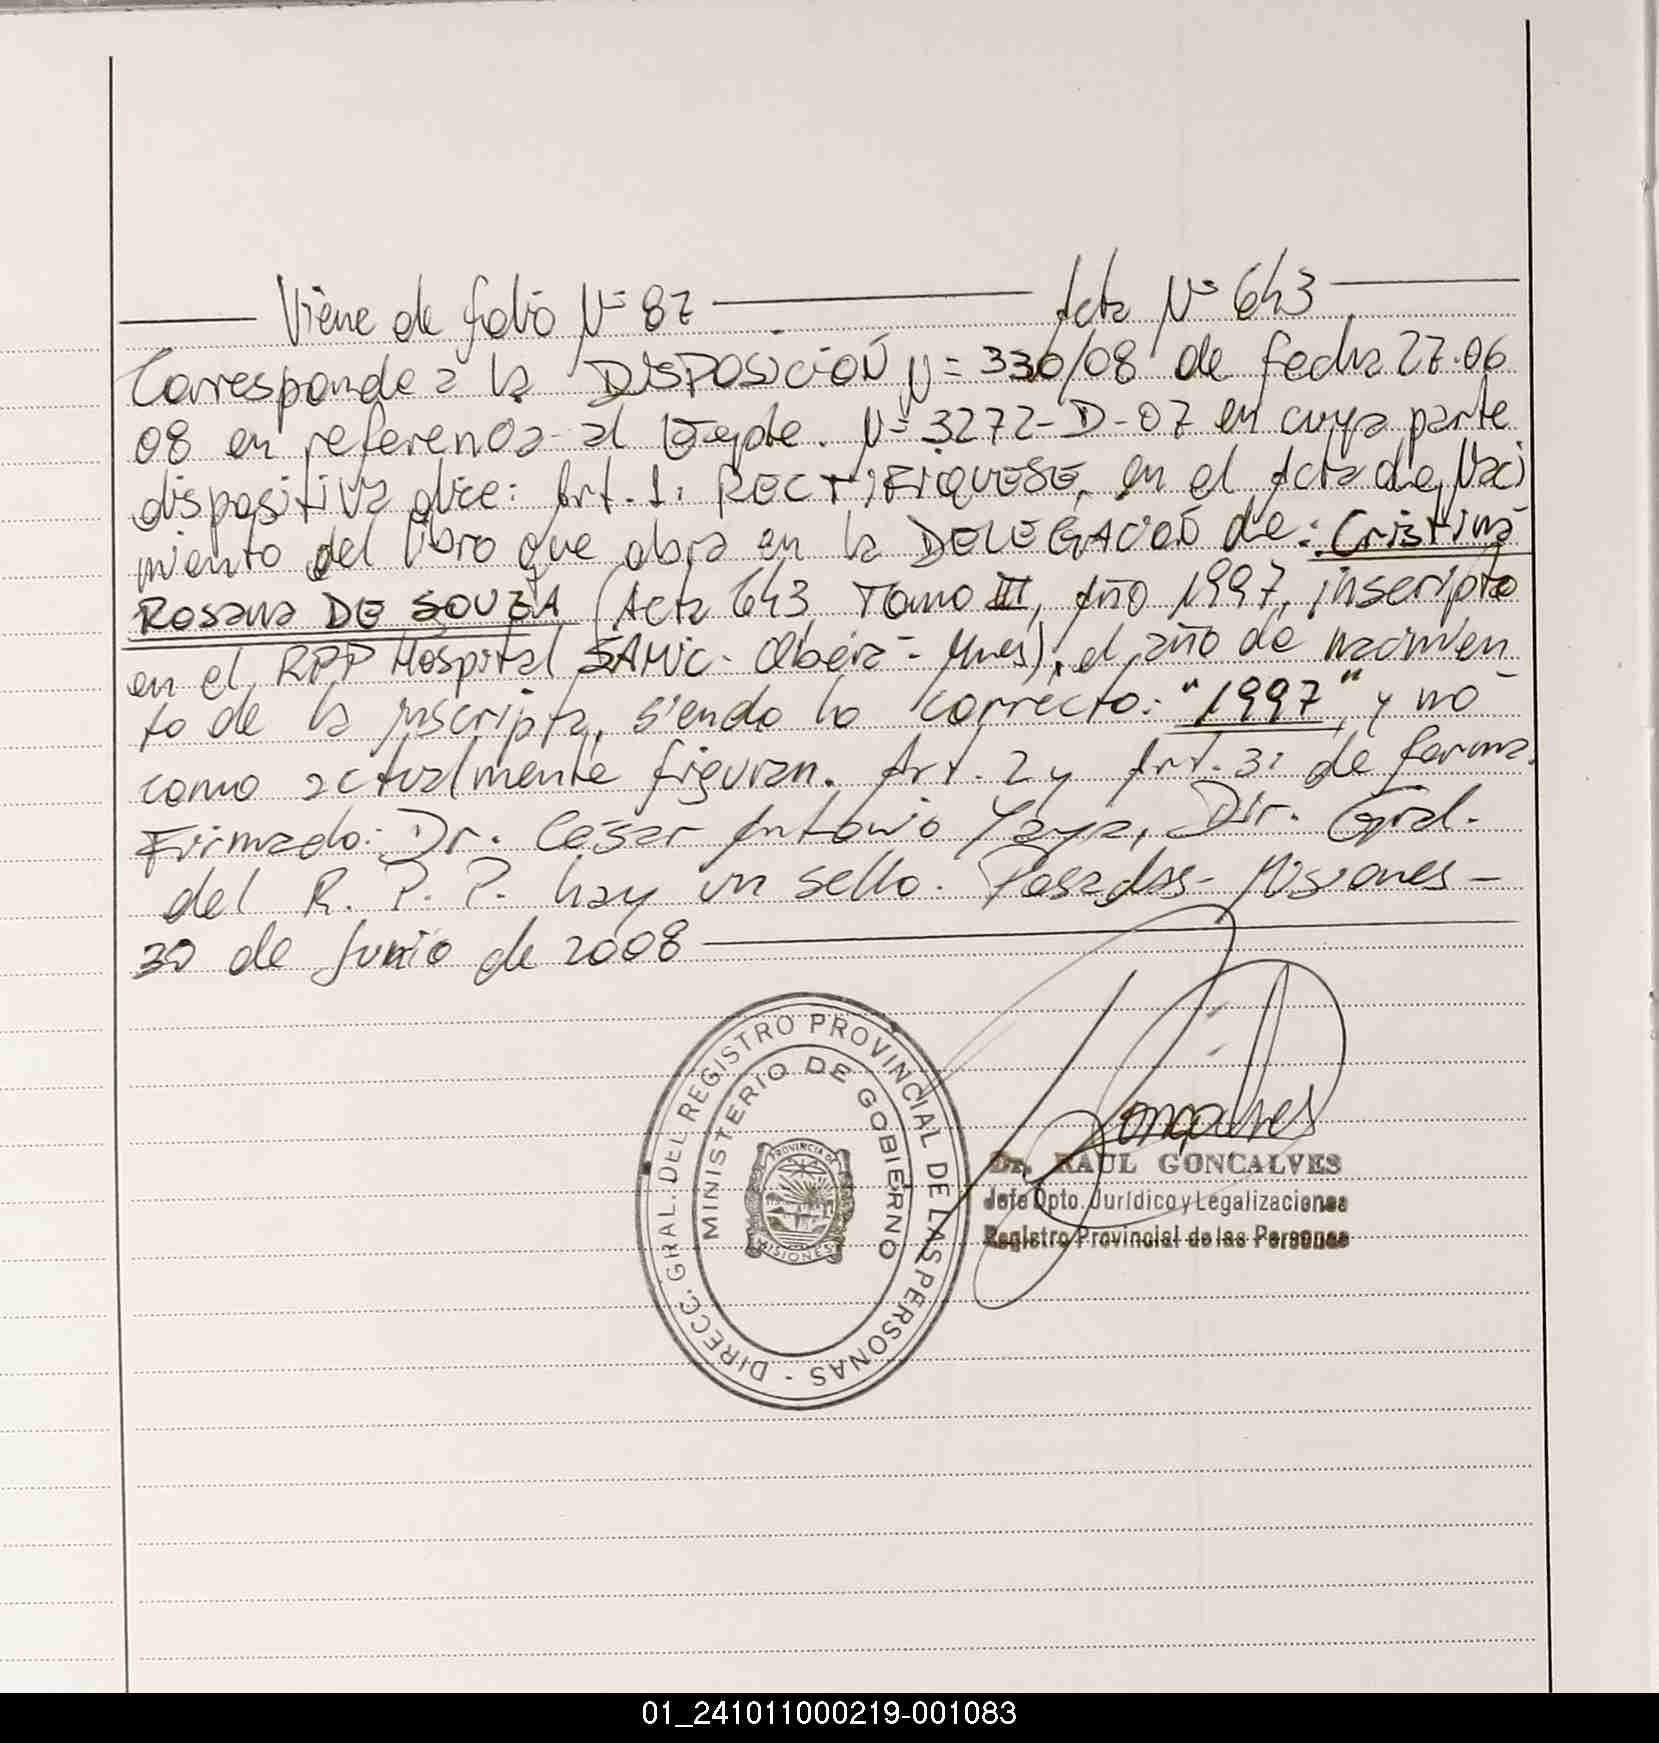 Viene de folio Nº 87 Acta Nº 643
Corresponde a la DISPOSICIÓN Nº 330/08 de fecha 27.06
08 en referencia al Expte. Nº 3272-D-07 en cuya parte
dispositiva dice: Art. 1: RECTIFIQUESE, en el Acta de Naci
miento del libro que obra en la DELEGACIÓN de: Cristina
Rosana DE SOUZA (Acta 643 Tomo III, Año 1997, inscripta
en el RPP Hospital SAMIC - Oberá - Mnes), el año de nacimien
to de la inscripta, siendo lo correcto: "1997", y no
como actualmente figuran. Art. 2 y Art. 3: de forma.
Firmado: Dr. César Antonio Yaya, Dir. Gral.
del R. P. P. hay un sello. Posadas - Misiones -
30 de Junio de 2008
DIRECC. GRAL. DEL REGISTRO PROVINCIAL DE LAS PERSONAS -
MINISTERIO DE GOBIERNO
PROVINCIA DE
MISIONES
Gonçalves
Dr. RAUL GONCALVES
Jefe Dpto. Jurídico y Legalizaciones
Registro Provincial de las Personas
01_241011000219-001083